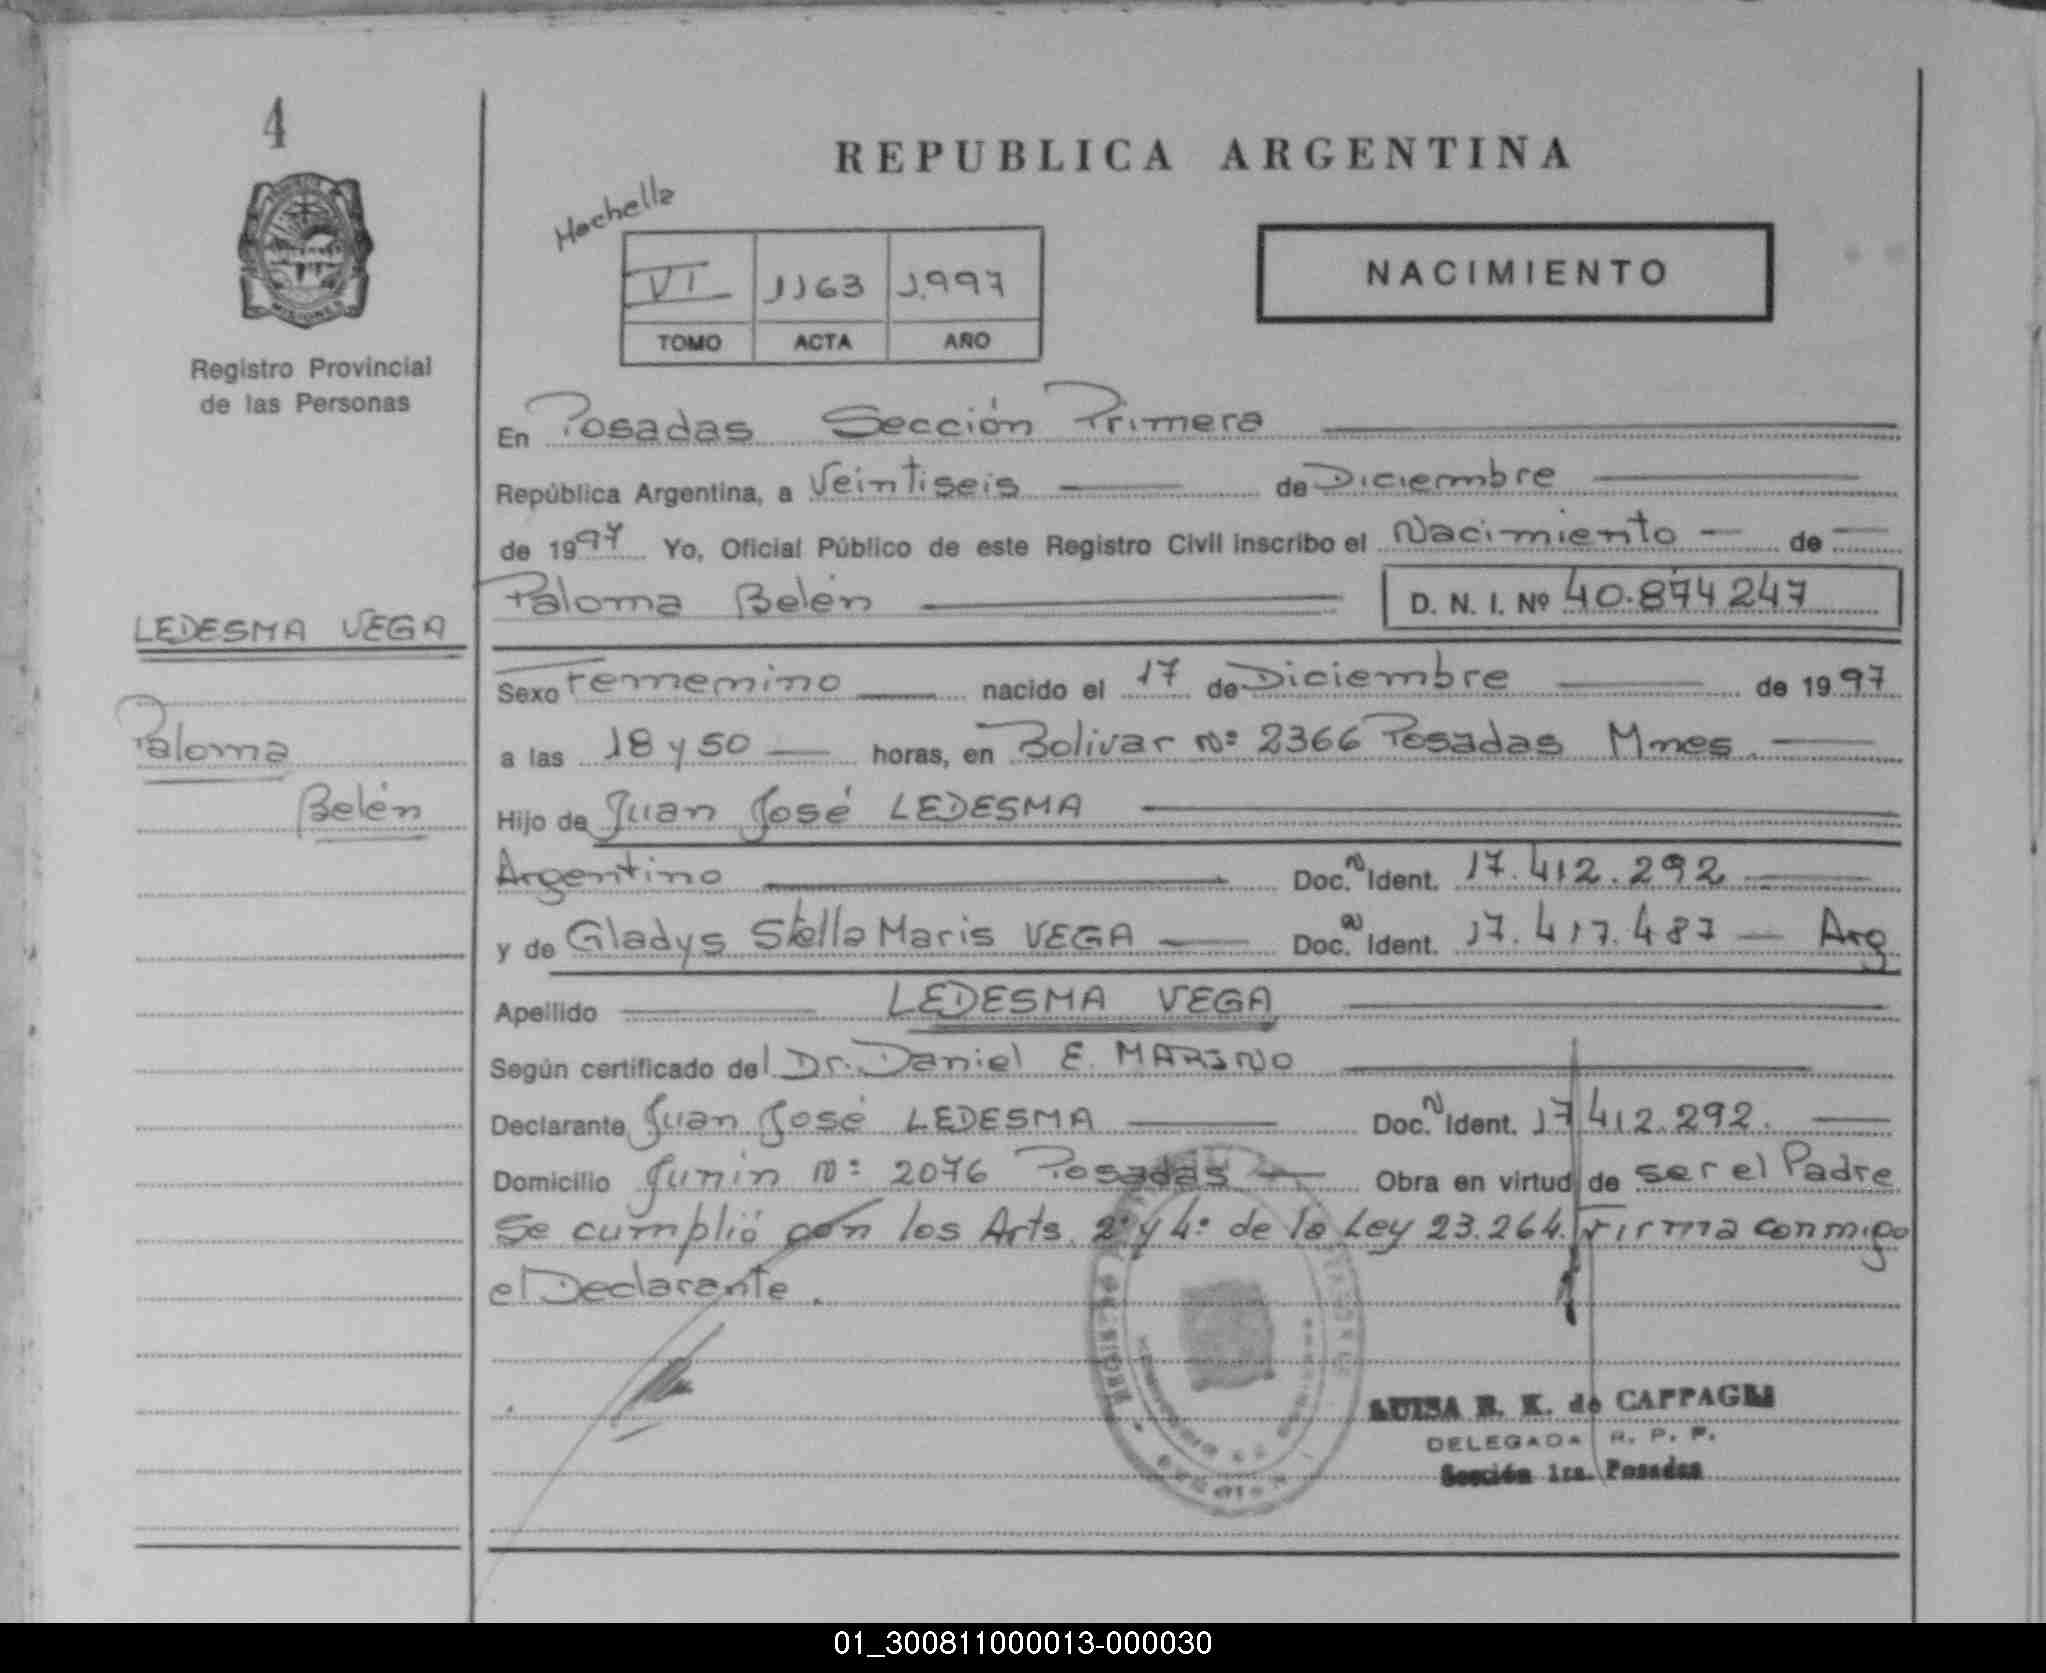 4
REPUBLICA ARGENTINA
Mochella
NACIMIENTO
VI 1163 1.997
TOMO ACTA AÑO
MISIONES
Registro Provincial
de las Personas
En Posadas Sección Primera
República Argentina, a Veintiseis de Diciembre
de 1997 Yo, Oficial Público de este Registro Civil inscribo el Nacimiento de
Paloma Belén D. N. I. Nº 40.874247
LEDESMA VEGA
Paloma
Belén
Sexo Femenino nacido el 17 de Diciembre de 1997
a las 18 y 50 horas, en Bolivar Nº 2366 Posadas Mnes.
Hijo de Juan José LEDESMA
Argentino Doc. N Ident. 17.412.292
y de Gladys Stella Maris VEGA Doc. N Ident. 17.417.487 Arg
Apellido LEDESMA VEGA
Según certificado del Dr. Daniel E. MARINO
Declarante Juan José LEDESMA Doc. N Ident. 17412.292.
Domicilio Junin Nº 2076 Posadas Obra en virtud de ser el Padre
Se cumplió con los Arts. 2º y 4º de la Ley 23.264. Firma conmigo
el Declarante.
LUISA R. K. de CAPPAGLI
DELEGADA R. P. P.
Sección 1ra. Posadas
01_300811000013-000030